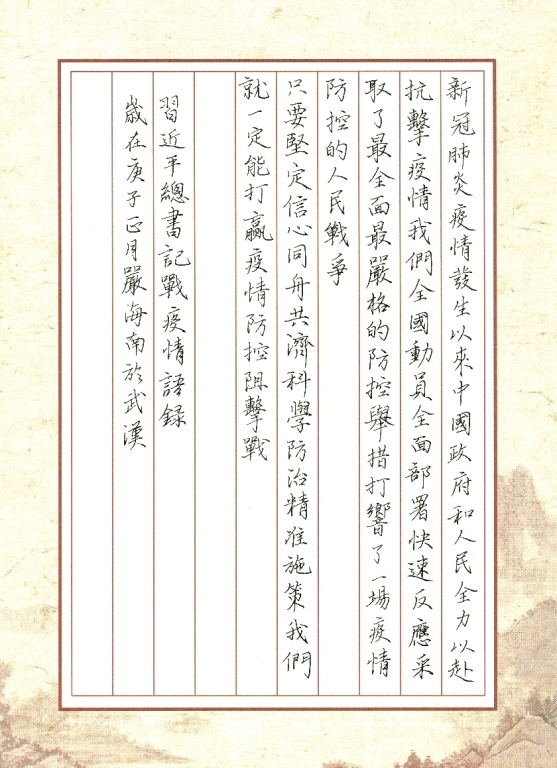 新冠肺炎疫情發生以來中國政府和人民全力以赴
抗擊疫情我們全國動員全面部署快速反應采
取了最全面最嚴格的防控舉措打響了一場疫情
防控的人民戰爭
只要堅定信心同舟共濟科學防治精准施策我們
就一定能打贏疫情防控阻擊戰
習近平總書記戰疫情語錄
歲在庚子正月嚴海南於武漢